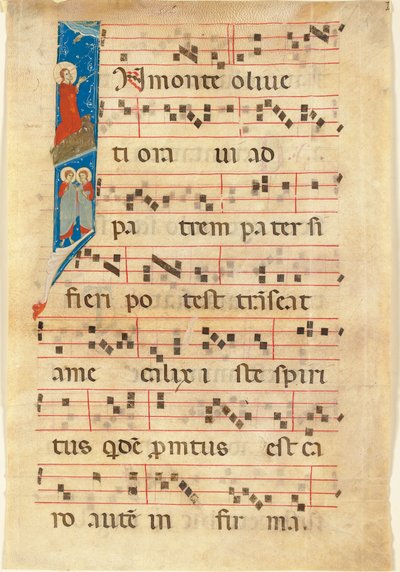 IN monte oliue
ti ora ui ad
pa trem pater si
fieri po test trãseat
ame calix i ste spiri
tus qdẽ pmtus est ca
ro autẽ in fir ma.